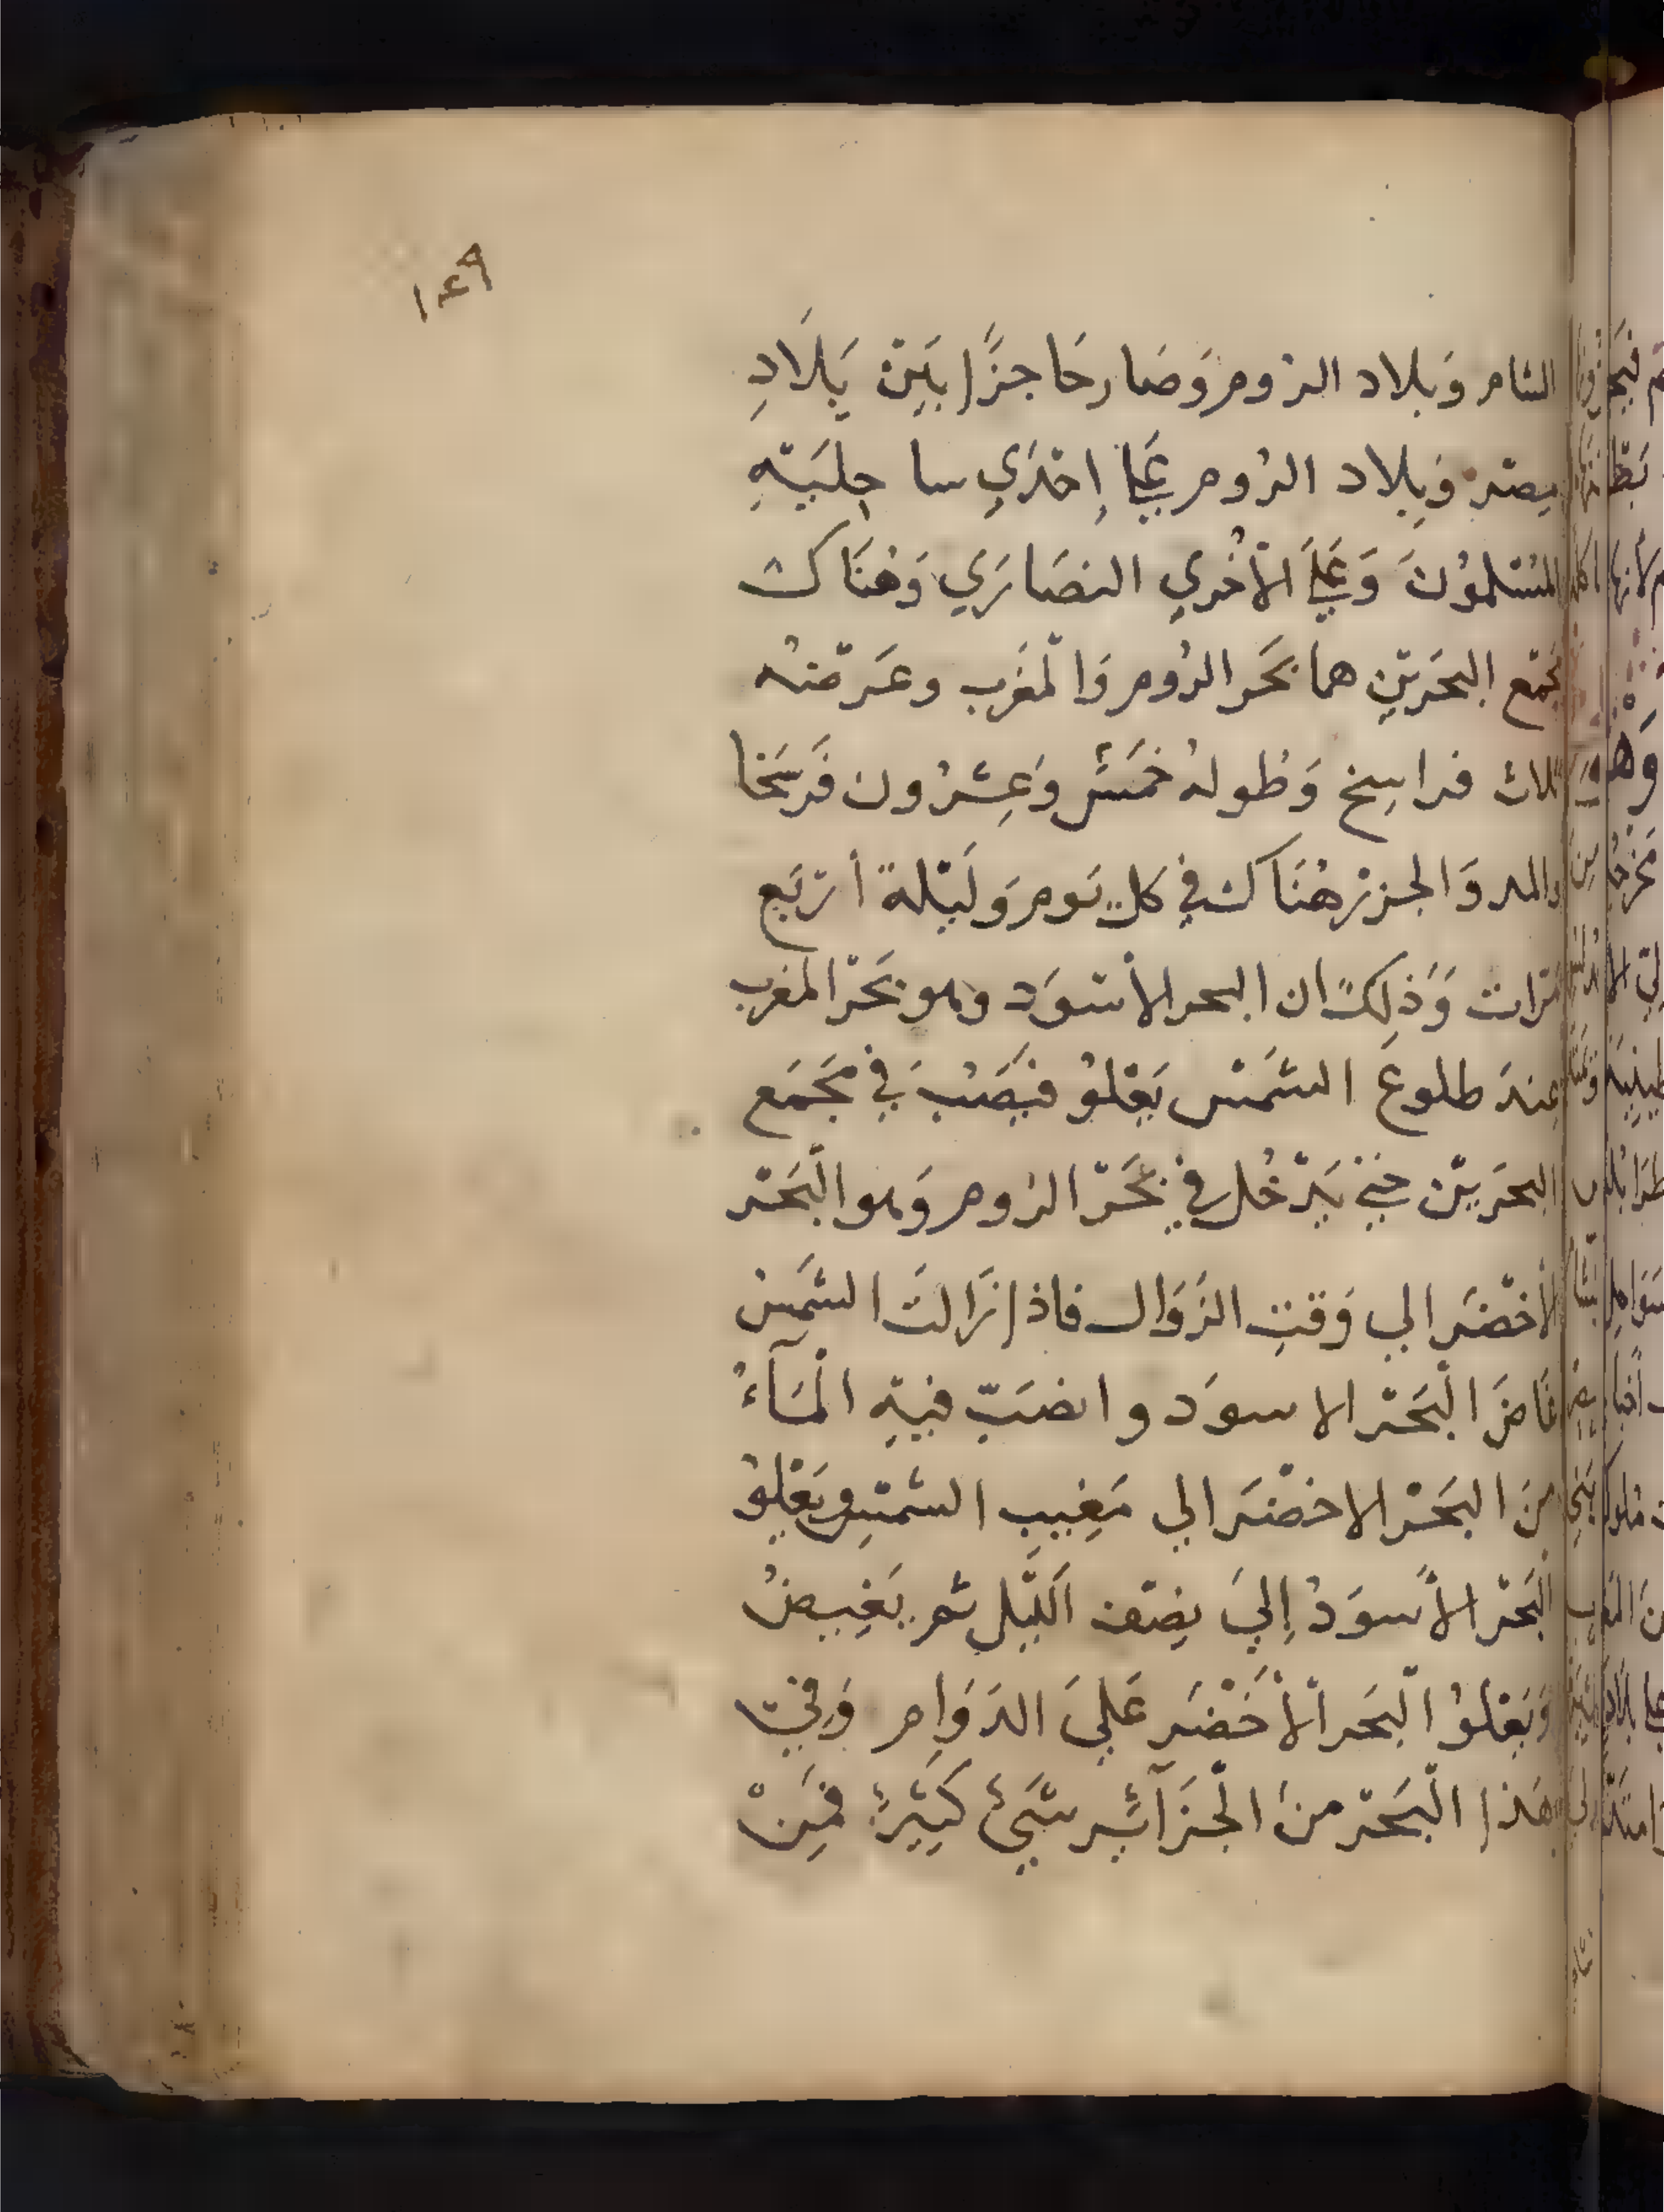 ١٤٩
الشام وَبلاد الرُوم وَصَار حَاجزًا بَيْن بِلَادِ
مِصْر وَبِلاد الرُوم عَلَى إِحْدَي ساحِليَهِ
المُسْلمُونَ وَعَلَى الأُخْرِي النصَارَي وَهُنَاك
مجمَع البحَرَيْنِ هما بحَر الرُوم وَالْمغَرب وعَرضْهُ
ثلاث فراسِخ وَطُولهُ خمَسَةٌ وَعِشرُون فَرسَخا
والمد وَالجزرْ هُنَاك في كل يَوم وَلَيْلة أرْبَع
مَرات وَذلِكَ ان البحر الأسْوَد وهو بَحْر المَغرب
عِندَ طلوعَ الشَمْس يَعْلوُ فيَصُب في مَجمَع
البحَرَيْن حَتَّى يَدْخُل في بَحَرْ الرُوم وَهو الْبَحَر
الأخْضَر الي وَقتِ الزَوَال فاذا زَالتَ الشَمس
غَاضَ الْبَحَرْ الاسوَد وانصَبّ فيهِ الْمآءُ
مِنَ البَحَرْ الاخضْرَ الي مَغِيبِ الشمْسِ وَيَعْلوُ
الْبَحْر الأسوَدُ إِليَ نِصْف اَللَّيل ثم يَغِيضُ
وَيَعْلوُ الْبَحر اْلأَخْضَر عَليَ الدَوَامِ وَفي
هَذا الْبَحَرْ منَ الْجَزآئِر شَيْءٌ كَثِيرٌ فمِنْ